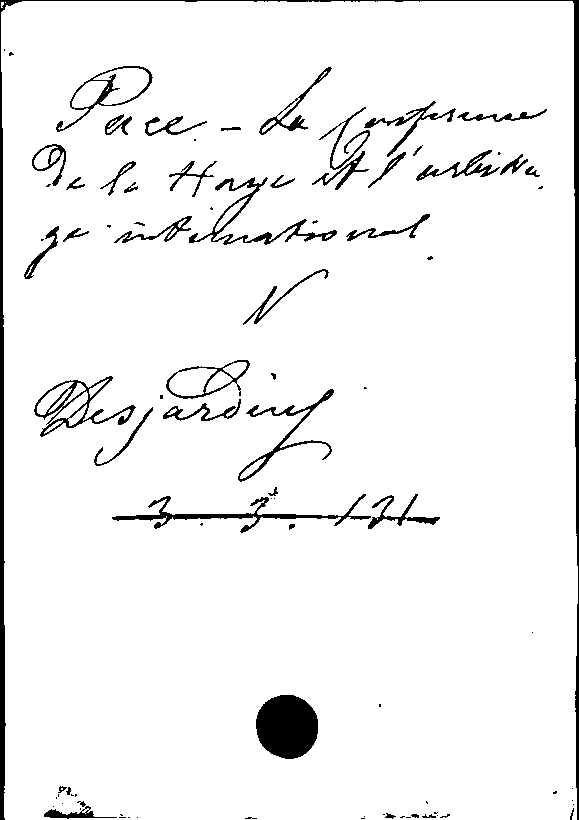 Pace - La conference
De la Haye et l'arbitra
ge international
V
Desjardins
3. 3. 131